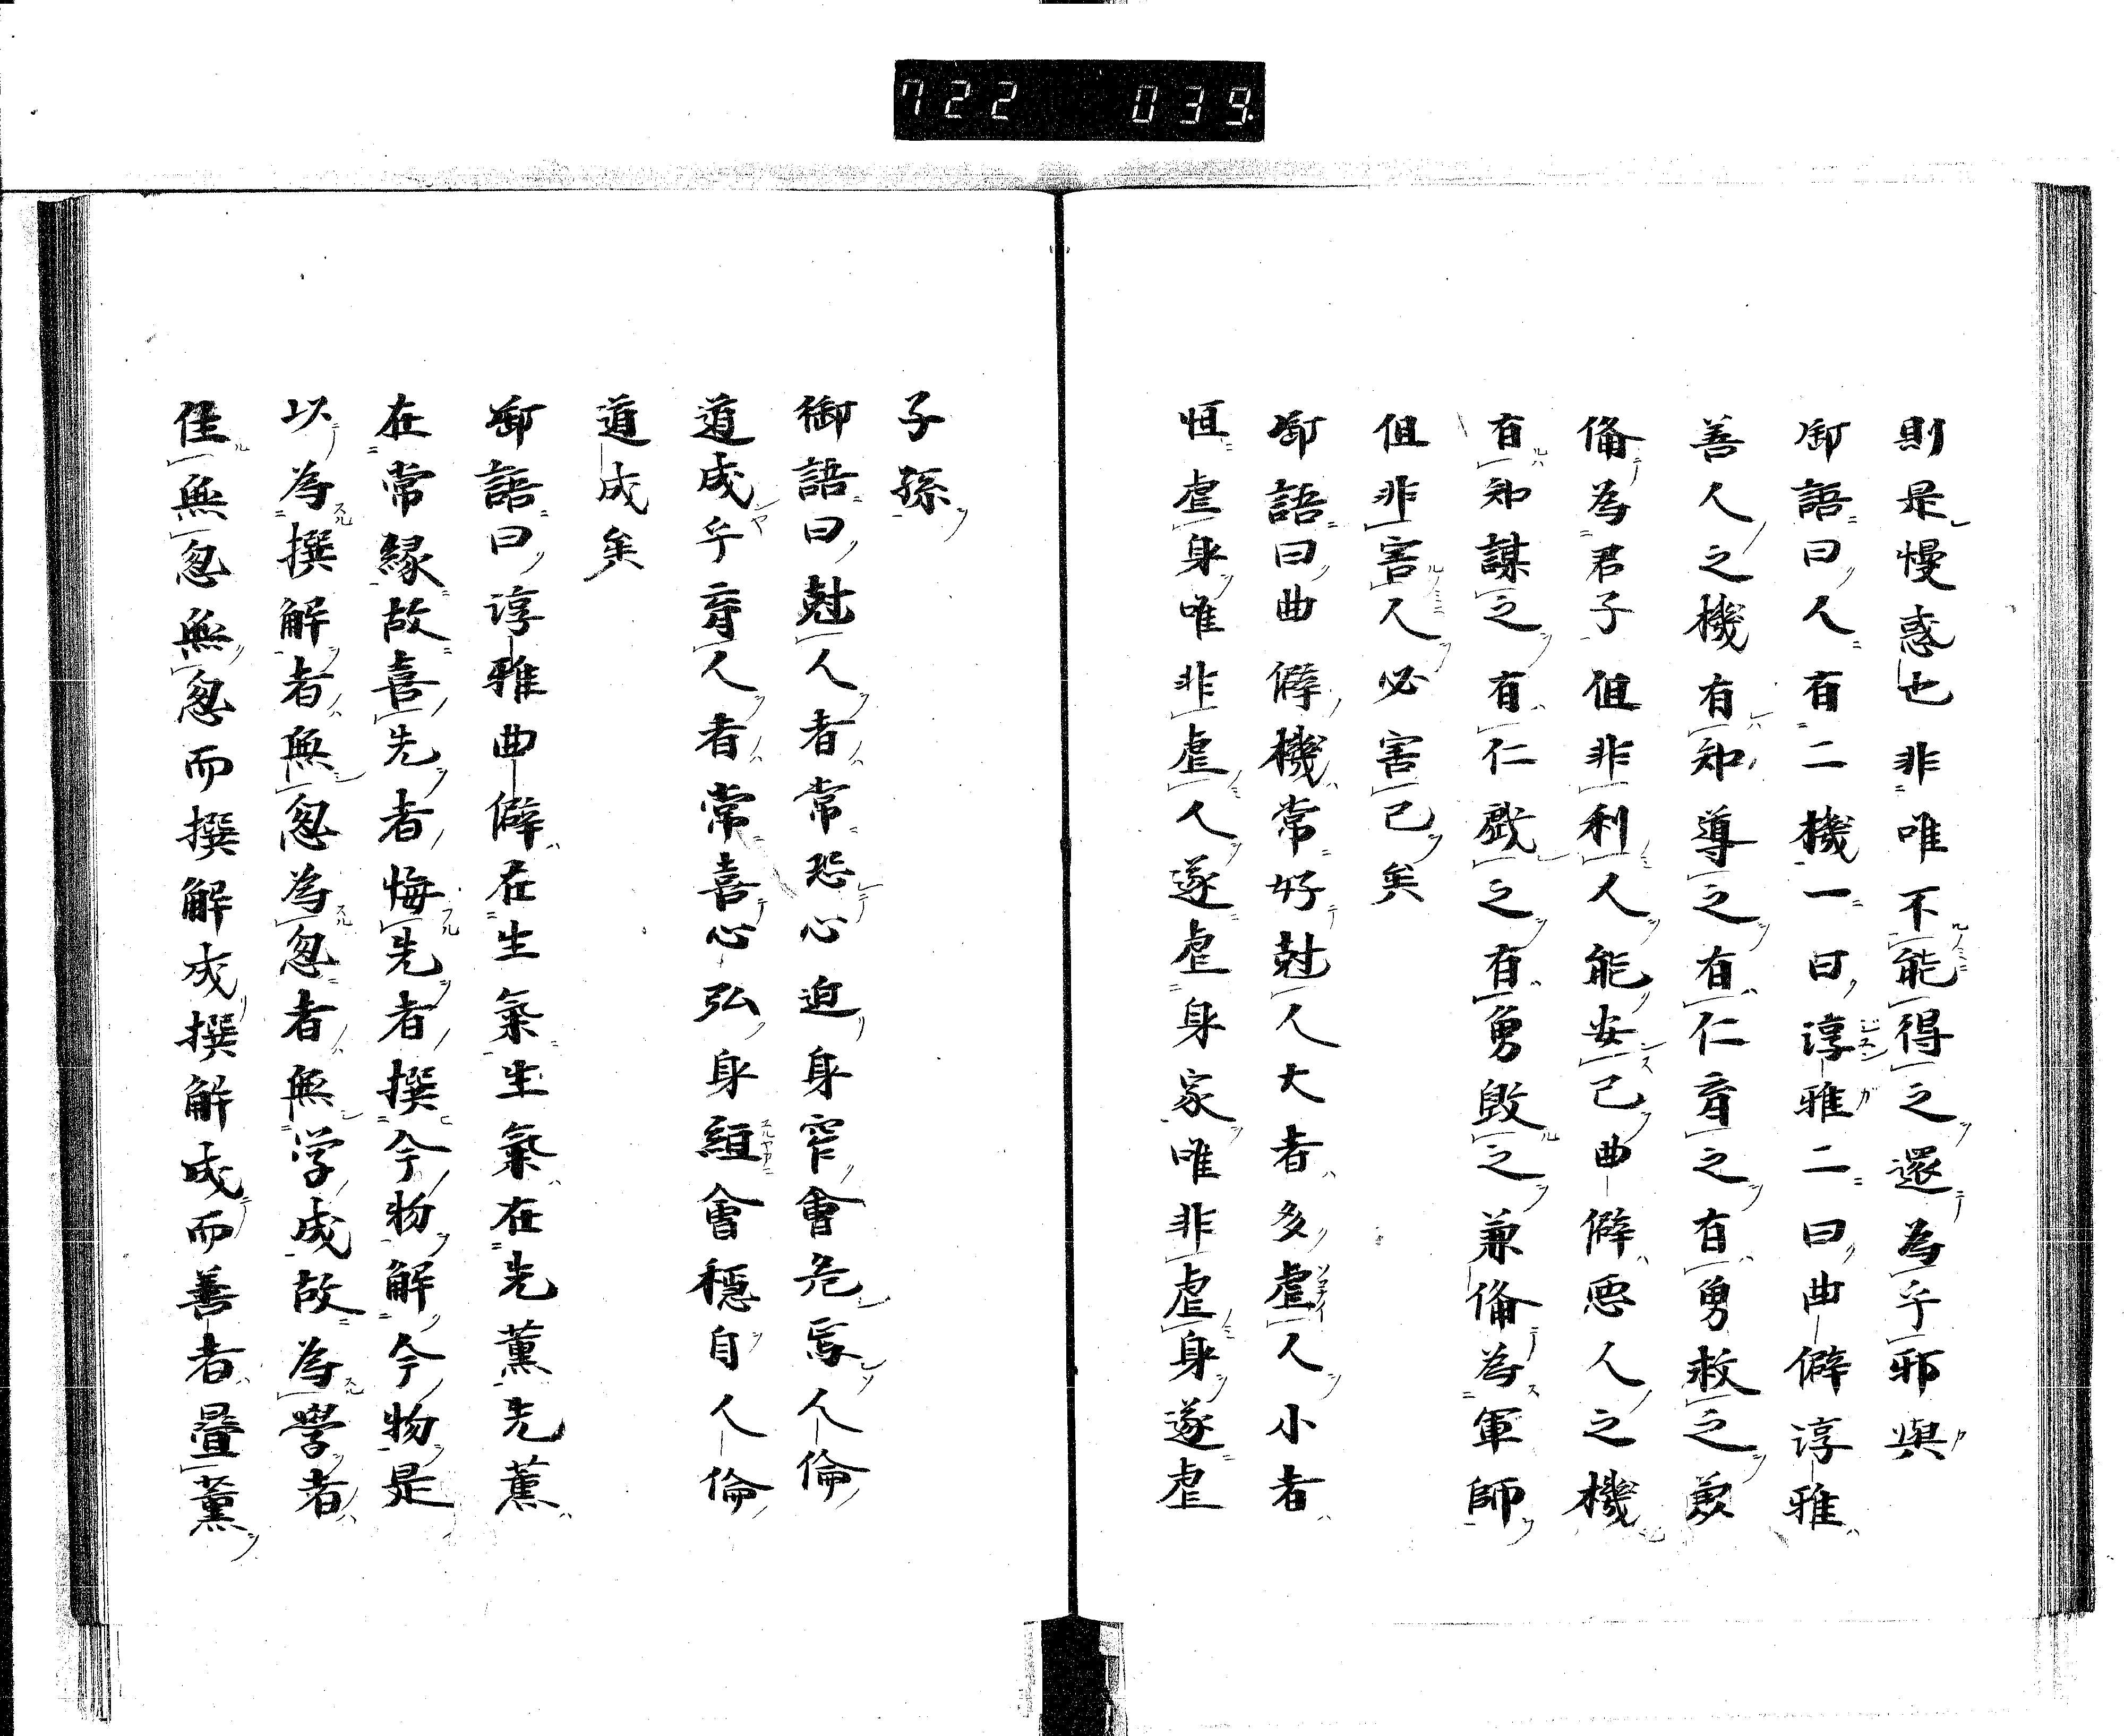 722 039.
則是慢惑也非唯不能得之還為乎邪與
御語曰人有二機一曰淳雅二曰曲僻淳雅
善人之機有知導之有仁育之有勇救之兼
備為君子但非利人能安己曲僻悪人之機
有知謀之有仁戯之有勇毀之兼備為軍師
但非害人必害己矣
御語曰曲僻機常好尅人大者多虐人小者
恒虐身唯非虐人遂虐身家唯非虐身遂虐
子孫
御語曰尅人者常恐心迫身窄會危焉人倫
道成乎育人者常喜心弘身絙會穏自人倫
道成矣
御語曰淳雅曲僻在生氣生氣在先薫先薫
在常縁故喜先者悔先者撰今物解今物是
以為撰解者無怱為怱者無学成故為學者
佳無怱無怱而撰解成撰解成而善者疊薫